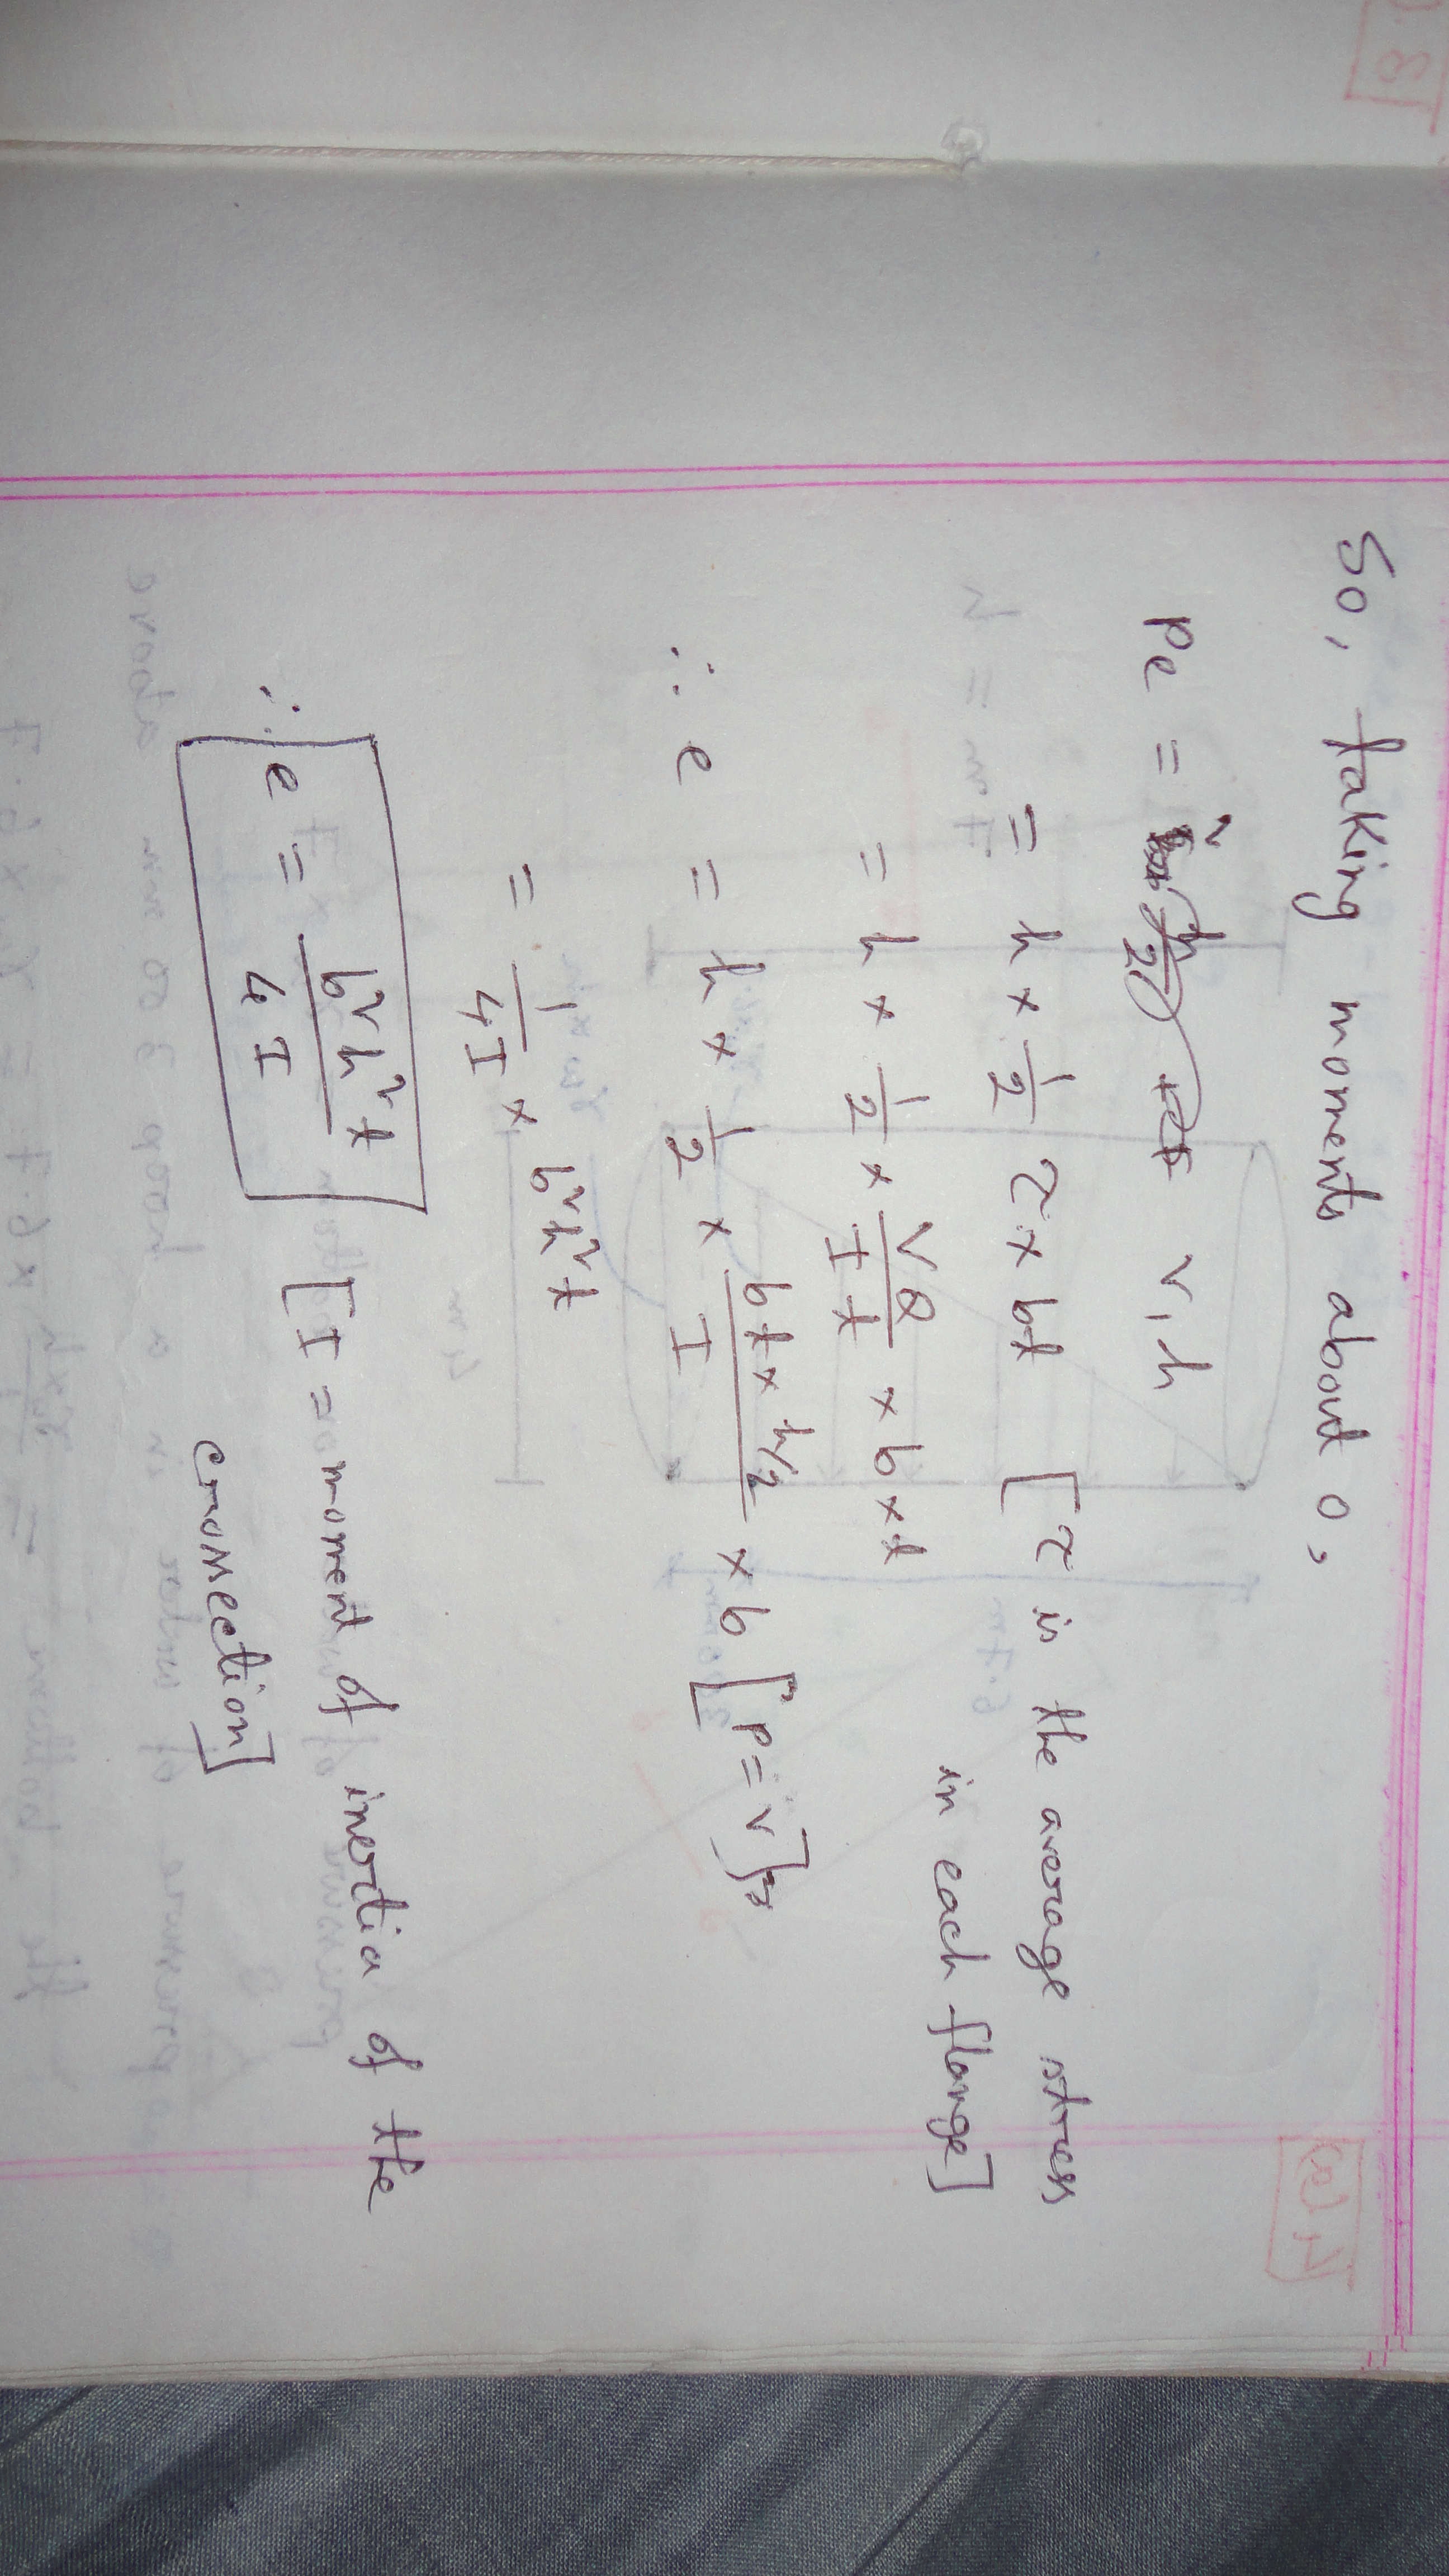 So, taking moments about O,
Pe = V₁h
= h × 1/2 τ × bt [τ is the average stress
in each flange]
= h × 1/2 × VQ/It × b × t
∴ e = h × 1/2 × (bt × h/2)/I × b [P = V]
= 1/4I × b²h²t
∴ e = b²h²t/4I [I = moment of inertia of the
crossection]